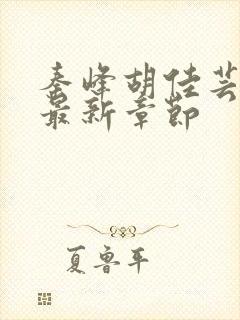 秦峰胡佳芸
最新章节
夏鲁平